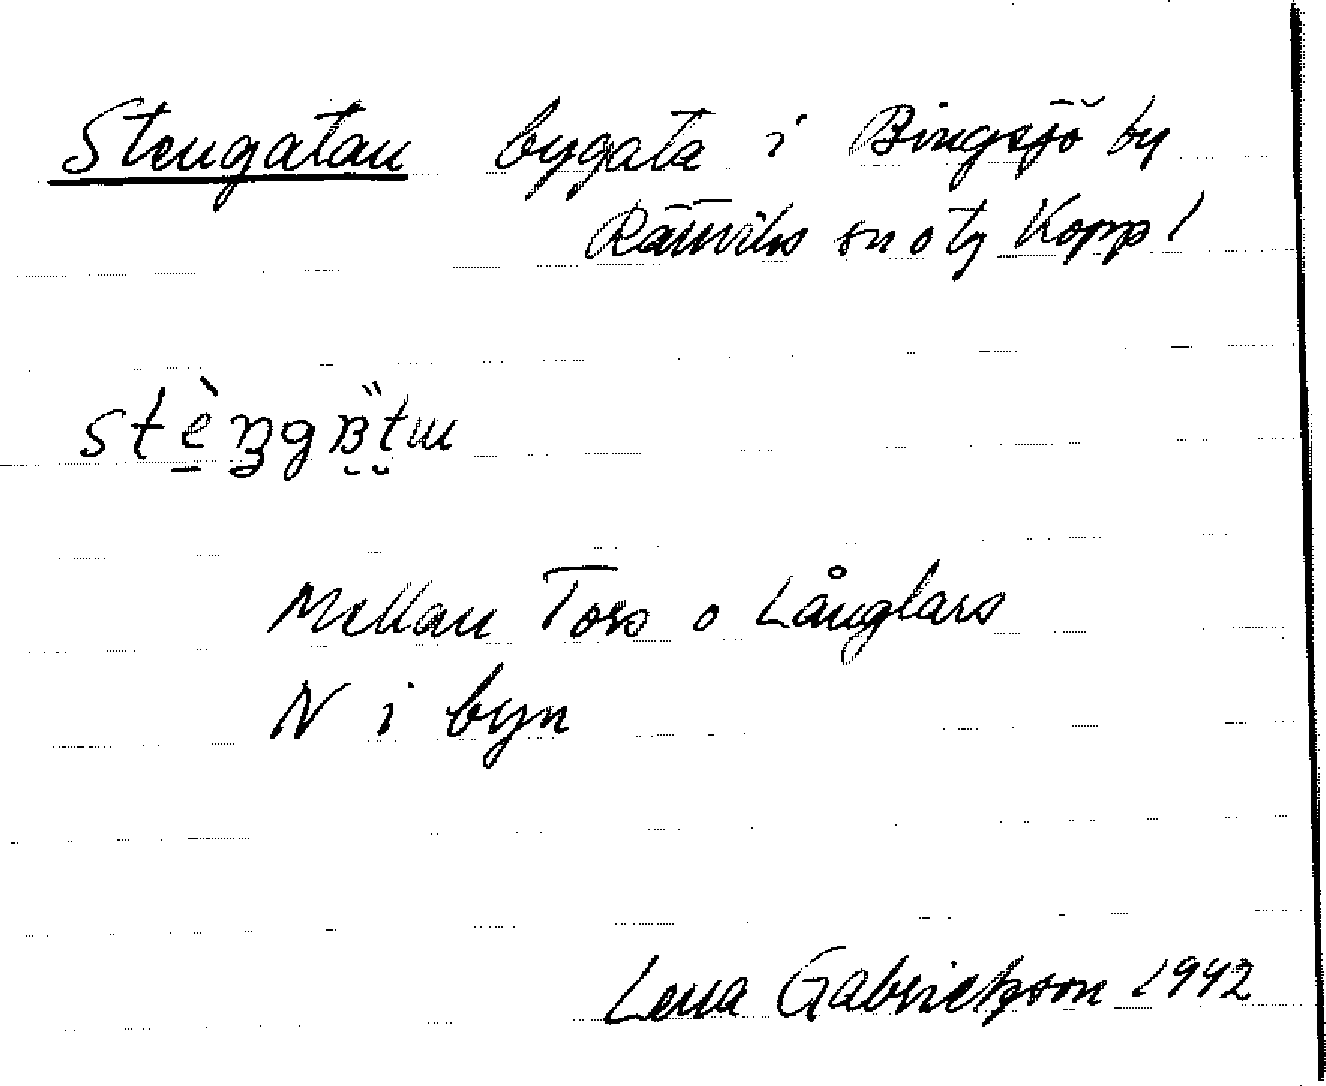 Stengatan bygata i Bingsjö by
Rättviks sn o tg Kopp l
Mellan Tors o Långlars
N i byn
Lena Gabrielsson 1942